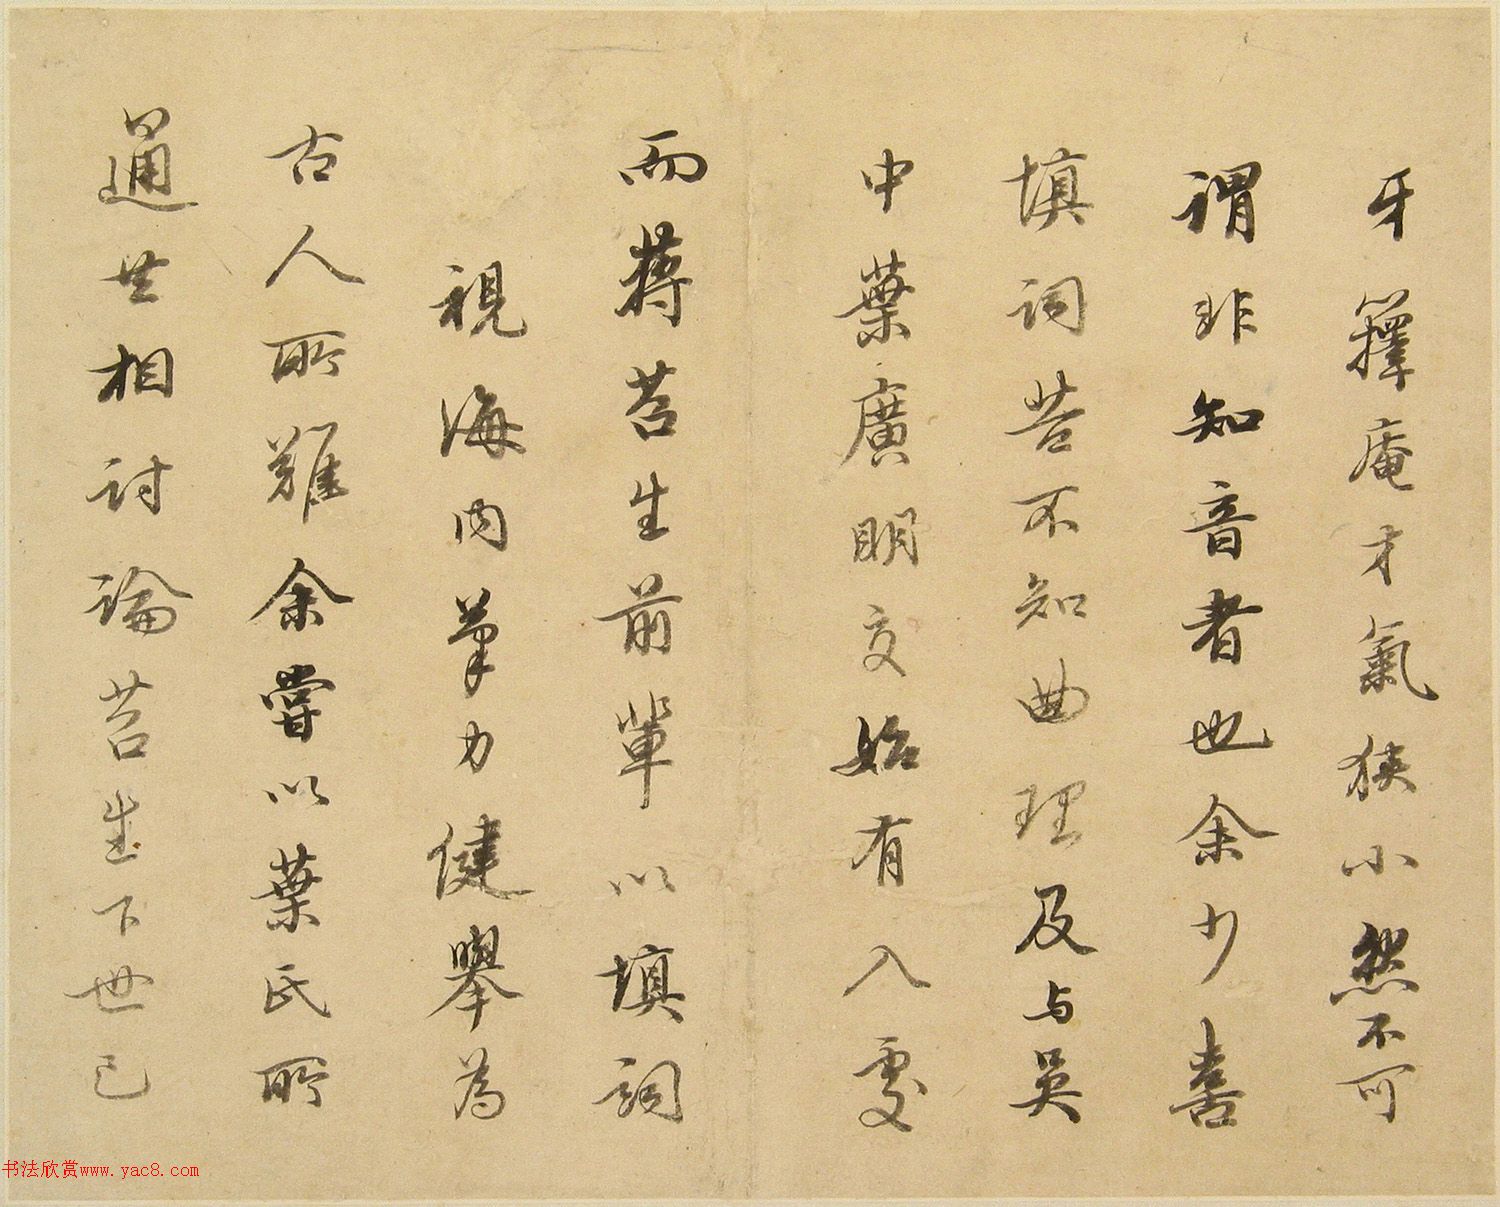 牙籜庵才氣狹小然不可
謂非知音者也余少喜
填詞苦不知曲理及与吳
中葉廣明交始有入處
而蔣苕生前輩以填詞
視海内筆力健舉為
古人所難余嘗以葉氏所
通共相討論苕生下世已
书法欣赏www.yac8.com